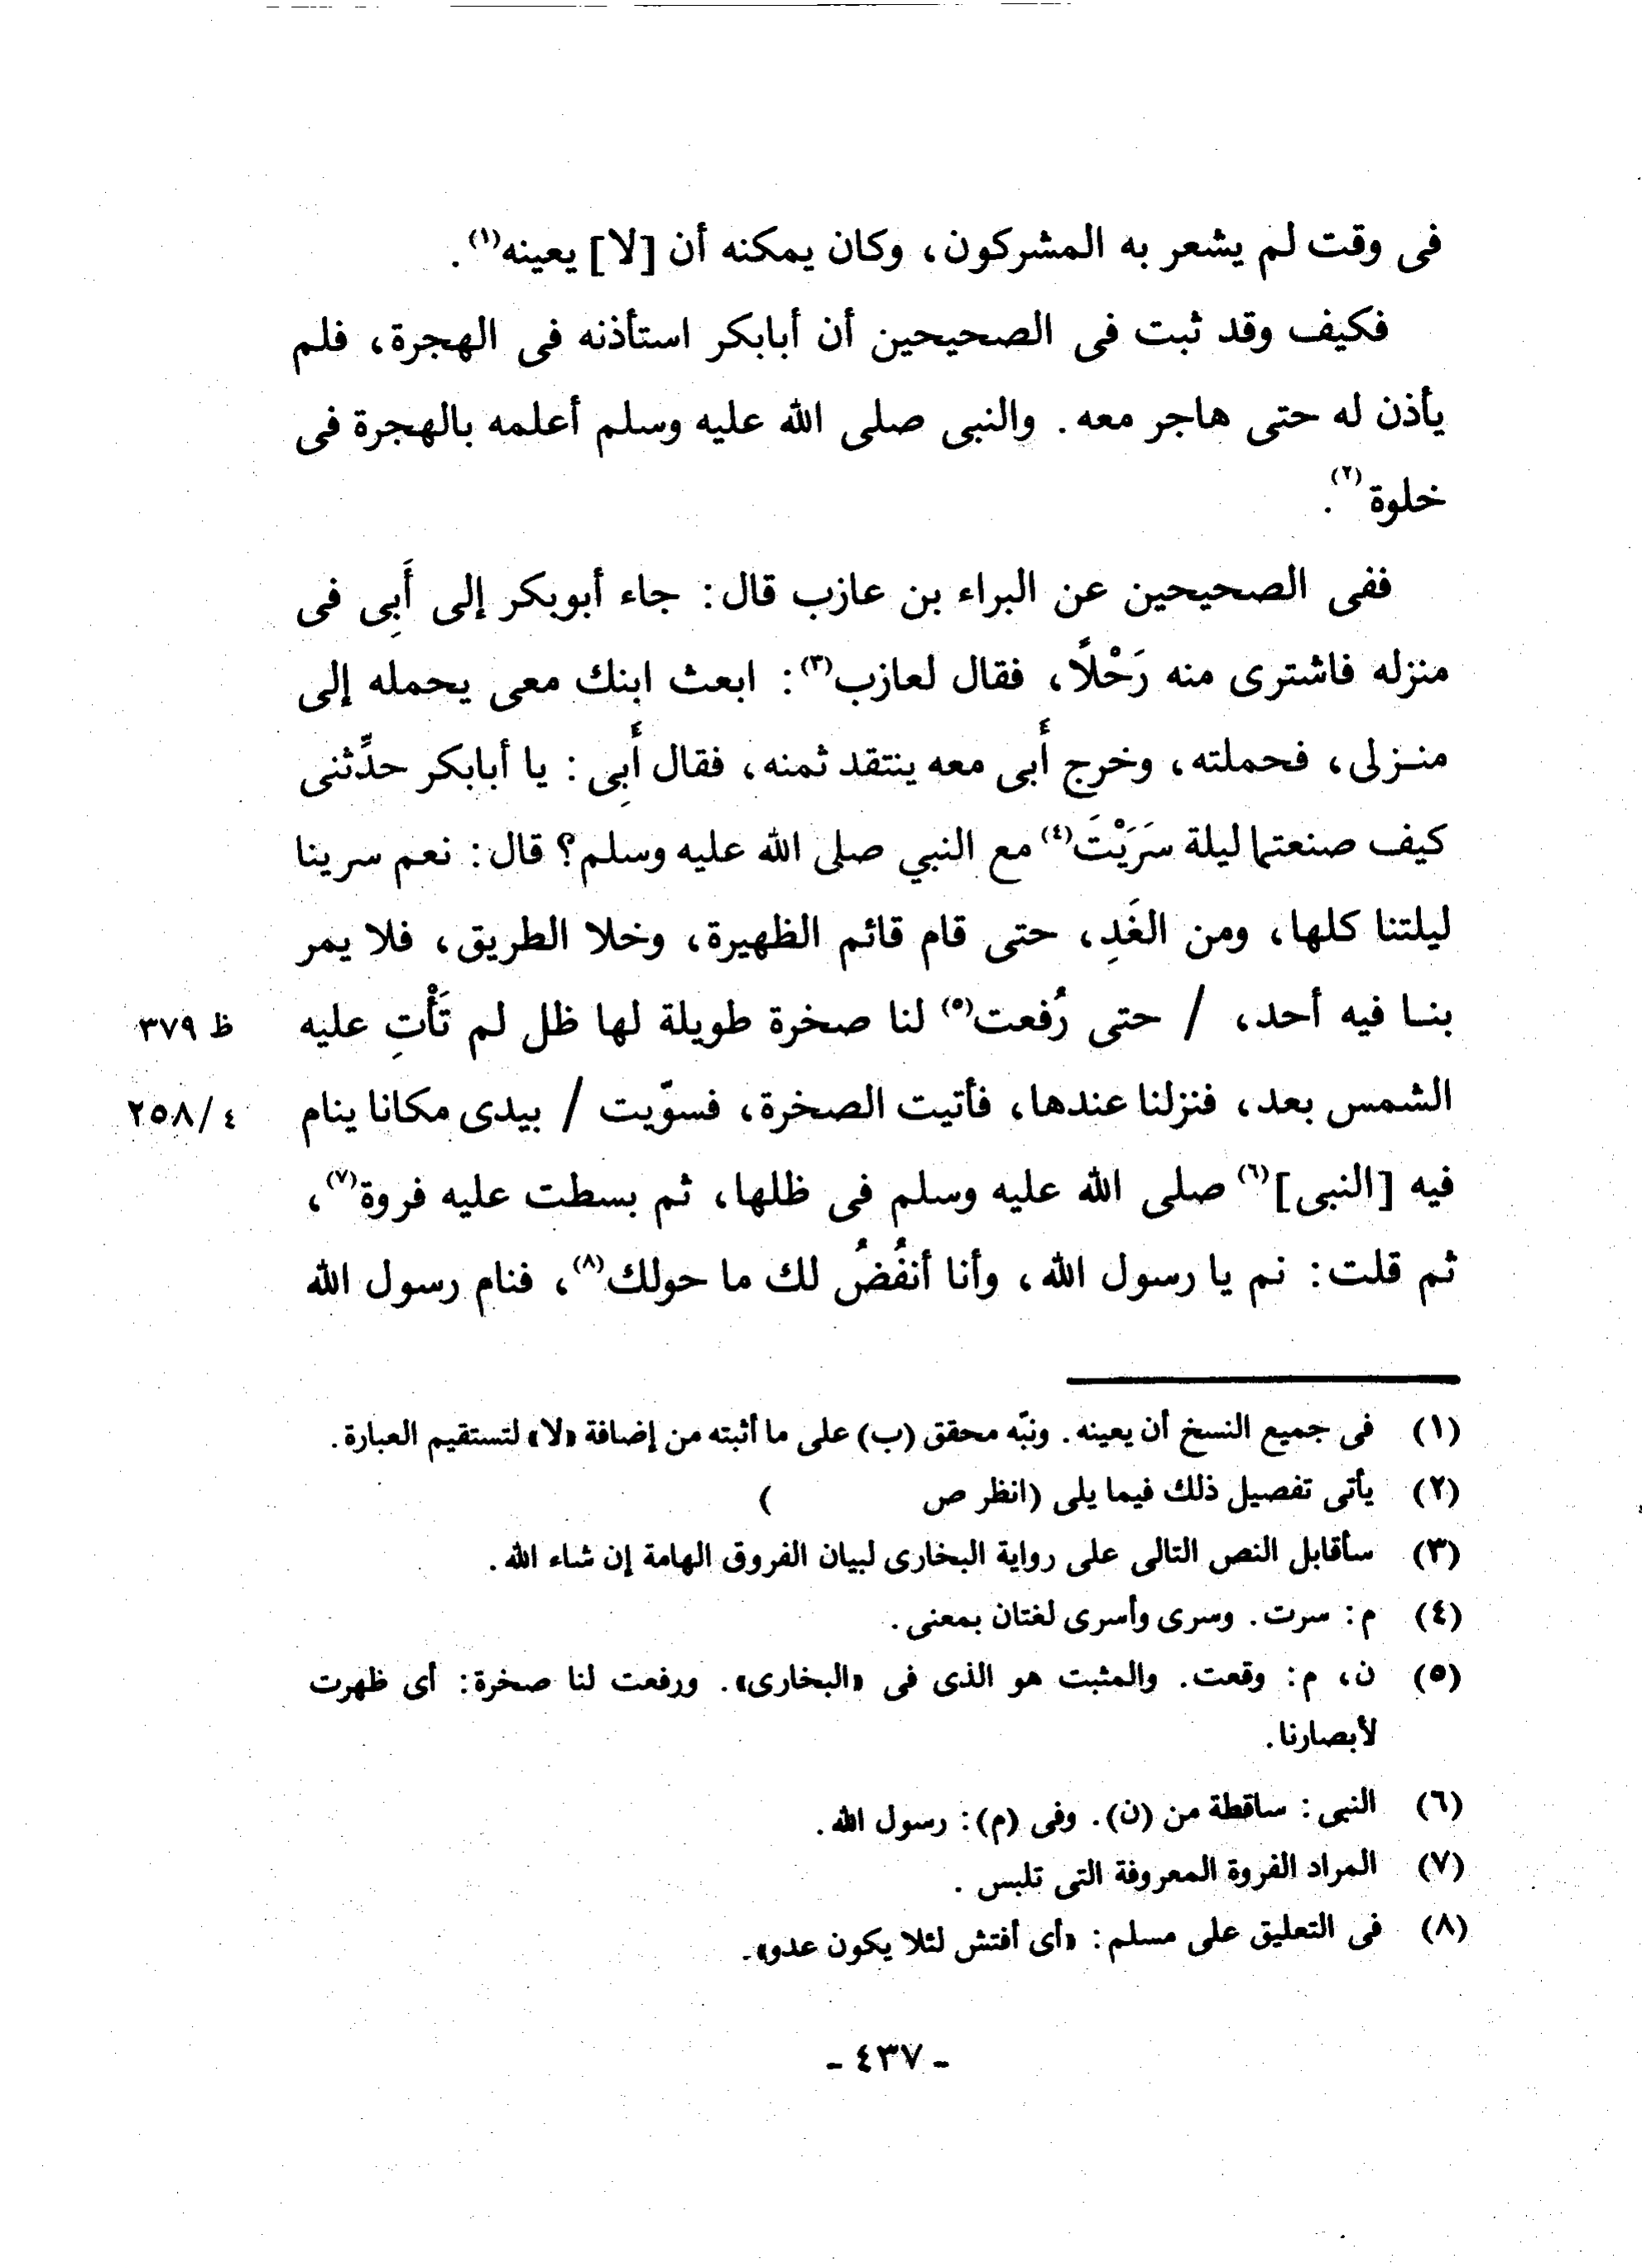 فى وقت لم يشعر به المشركون، وكان يمكنه أن [لا] يعينه(١).
فكيف وقد ثبت فى الصحيحين أن أبابكر استأذنه فى الهجرة، فلم
يأذن له حتى هاجر معه. والنبى صلى الله عليه وسلم أعلمه بالهجرة فى
خلوة(٢).
ففى الصحيحين عن البراء بن عازب قال: جاء أبوبكر إلى أَبِى فى
منزله فاشترى منه رَحْلاً، فقال لعازب(٣): ابعث ابنك معى يحمله إلى
منـزلى، فحملته، وخرج أَبى معه ينتقد ثمنه، فقال أَبِى: يا أبابكر حدِّثنى
كيف صنعتما ليلة سَرَيْتَ(٤) مع النبي صلى الله عليه وسلم؟ قال: نعم سرينا
ليلتنا كلها، ومن الغَدِ، حتى قام قائم الظهيرة، وخلا الطريق، فلا يمر
بنـا فيه أحد، / حتى رُفعت(٥) لنا صخرة طويلة لها ظل لم تَأْتِ عليه ظ ٣٧٩
الشمس بعد، فنزلنا عندها، فأتيت الصخرة، فسوّيت / بيدى مكانا ينام ٤/٢٥٨
فيه [النبى](٦) صلى الله عليه وسلم فى ظلها، ثم بسطت عليه فروة(٧)،
ثم قلت: نم يا رسول الله، وأنا أنفُضُ لك ما حولك(٨)، فنام رسول الله
(١) فى جميع النسخ أن يعينه. ونبّه محقق (ب) على ما أثبته من إضافة «لا» لتستقيم العبارة.
(٢) يأتى تفصيل ذلك فيما يلى (انظر ص )
(٣) سأقابل النص التالى على رواية البخارى لبيان الفروق الهامة إن شاء الله.
(٤) م: سرت. وسرى وأسرى لغتان بمعنى.
(٥) ن، م: وقعت. والمثبت هو الذى فى «البخارى». ورفعت لنا صخرة: أى ظهرت
لأبصارنا.
(٦) النبى: ساقطة من (ن). وفى (م): رسول الله.
(٧) المراد الفروة المعروفة التى تلبس.
(٨) فى التعليق على مسلم: «أى أفتش لئلا يكون عدو».
- ٤٣٧ -